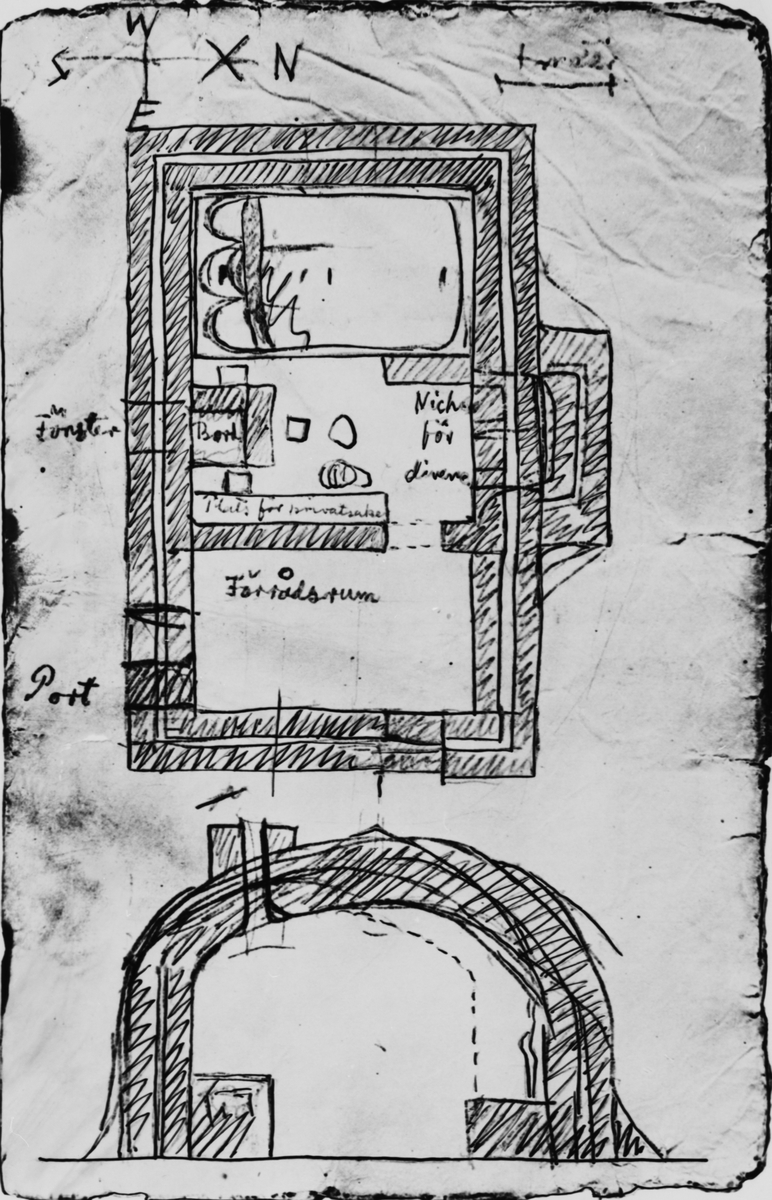 W
S
N
E
1 meter
Fönster
Bord
Nich
för
diverse
Plats för privatsaker
Förrådsrum
Port